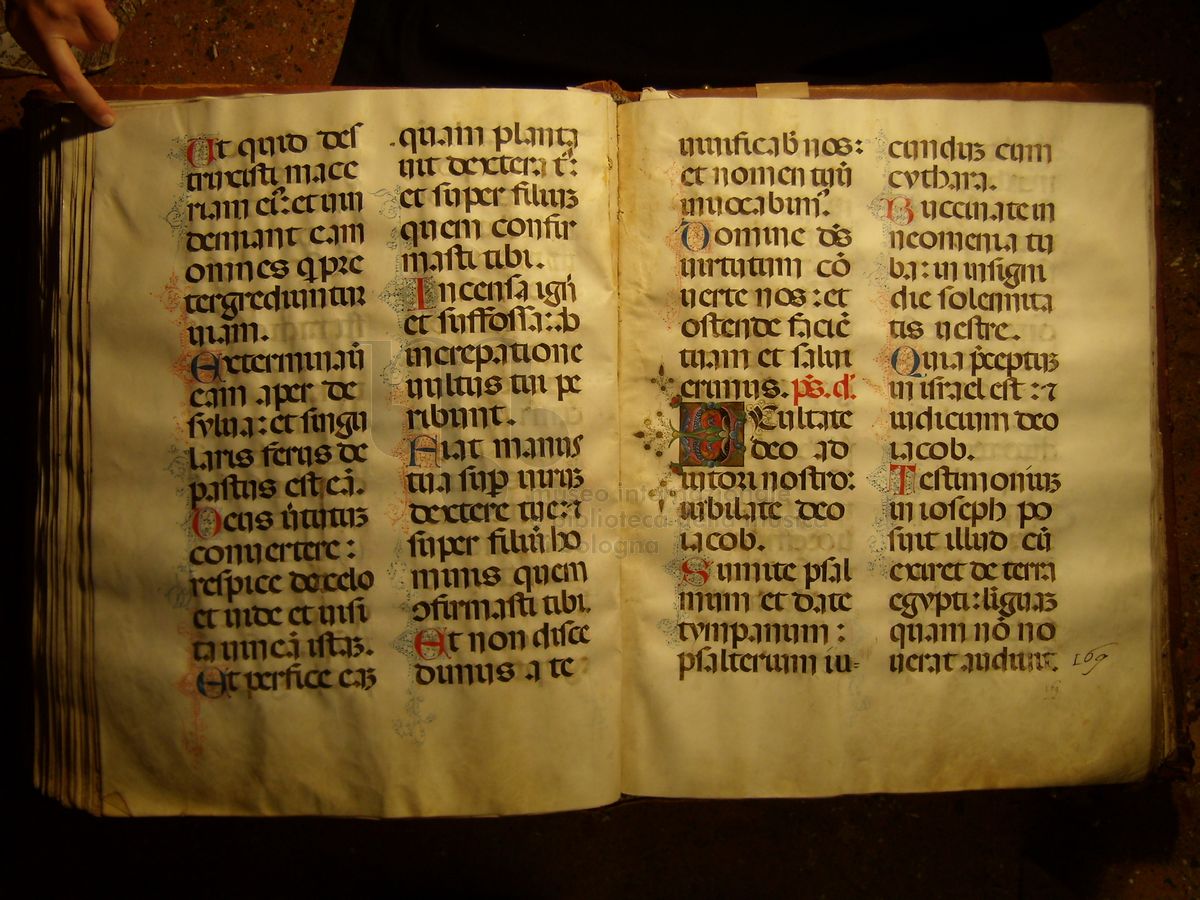 Ut quid des
truxisti mace
riam eiꝰ: et uin
demiant eam
omnes q̇ pre
tergrediuntur
uiam.
Exterminauit̄
eam aper de
sylua: et singu
laris ferus de
pastus est eā.
Deus ūtutuꝫ
conuertere:
respice de celo
et uide et uisi
ta uineā istaꝫ.
Et perfice eaꝫ
quam planta
uit dextera t̄:
et super filiuꝫ
quem confir
masti tibi.
Incensa igni
et suffossa: ab
increpatione
uultus tui pe
ribunt.
Fiat manus
tua sup̄ uiruꝫ
dextere tue: ⁊
super filiū ho
minis quem
ꝯfirmasti tibi.
Et non disce
dimus a te
uiuificab̄ nos:
et nomen tuū
inuocabimꝰ.
Domine ds̄
uirtutum cō
uerte nos: et
ostende faciē
tuam et salui
erimus. ps̄. d̄.
EXultate
deo ad
iutori nostro:
iubilate deo
iacob.
Sumite psal
mum et date
tympanum:
psalterium iu-
cunduꝫ cum
cythara.
Buccinate in
neomenia tu
ba: in insigni
die solennita
tis uestre.
Quia p̄ceptuꝫ
in israel est: ⁊
iudicium deo
iacob.
Testimoniuꝫ
in ioseph po
suit illud cū
exiret de terra
egypti: linguaꝫ
quam nō no
uerat audiuit.
169
museo internazionale
e biblioteca della musica
bologna